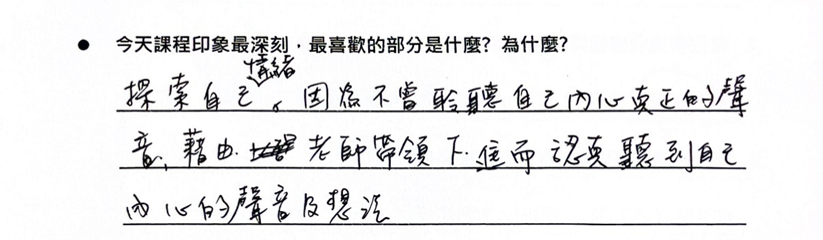 ● 今天課程印象最深刻,最喜歡的部分是什麼? 為什麼?
探索自己情緒。因為不曾聆聽自己內心真正的聲
音,藉由老師帶領下.進而認真聽到自己
內心的聲音及想法